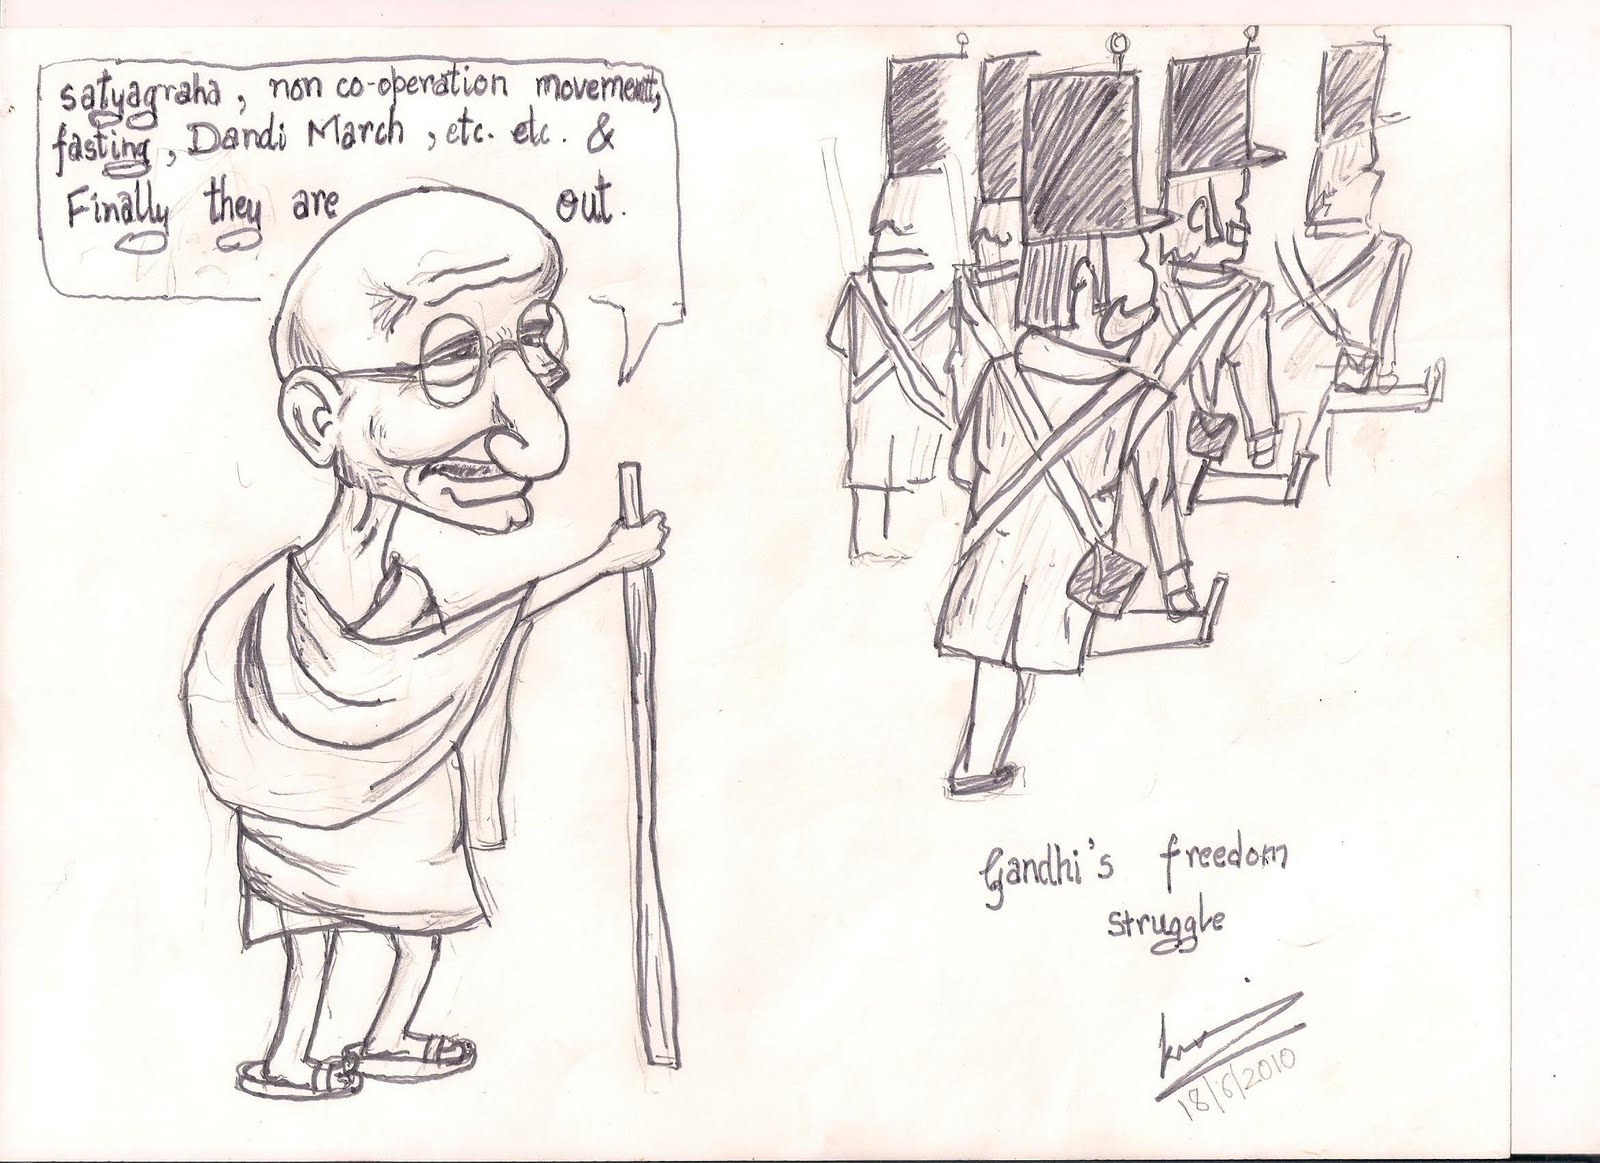 satyagraha, non co-operation movement,
fasting, Dandi March, etc. etc. &
Finally they are out.
Gandhi's freedom
struggle
18/6/2010